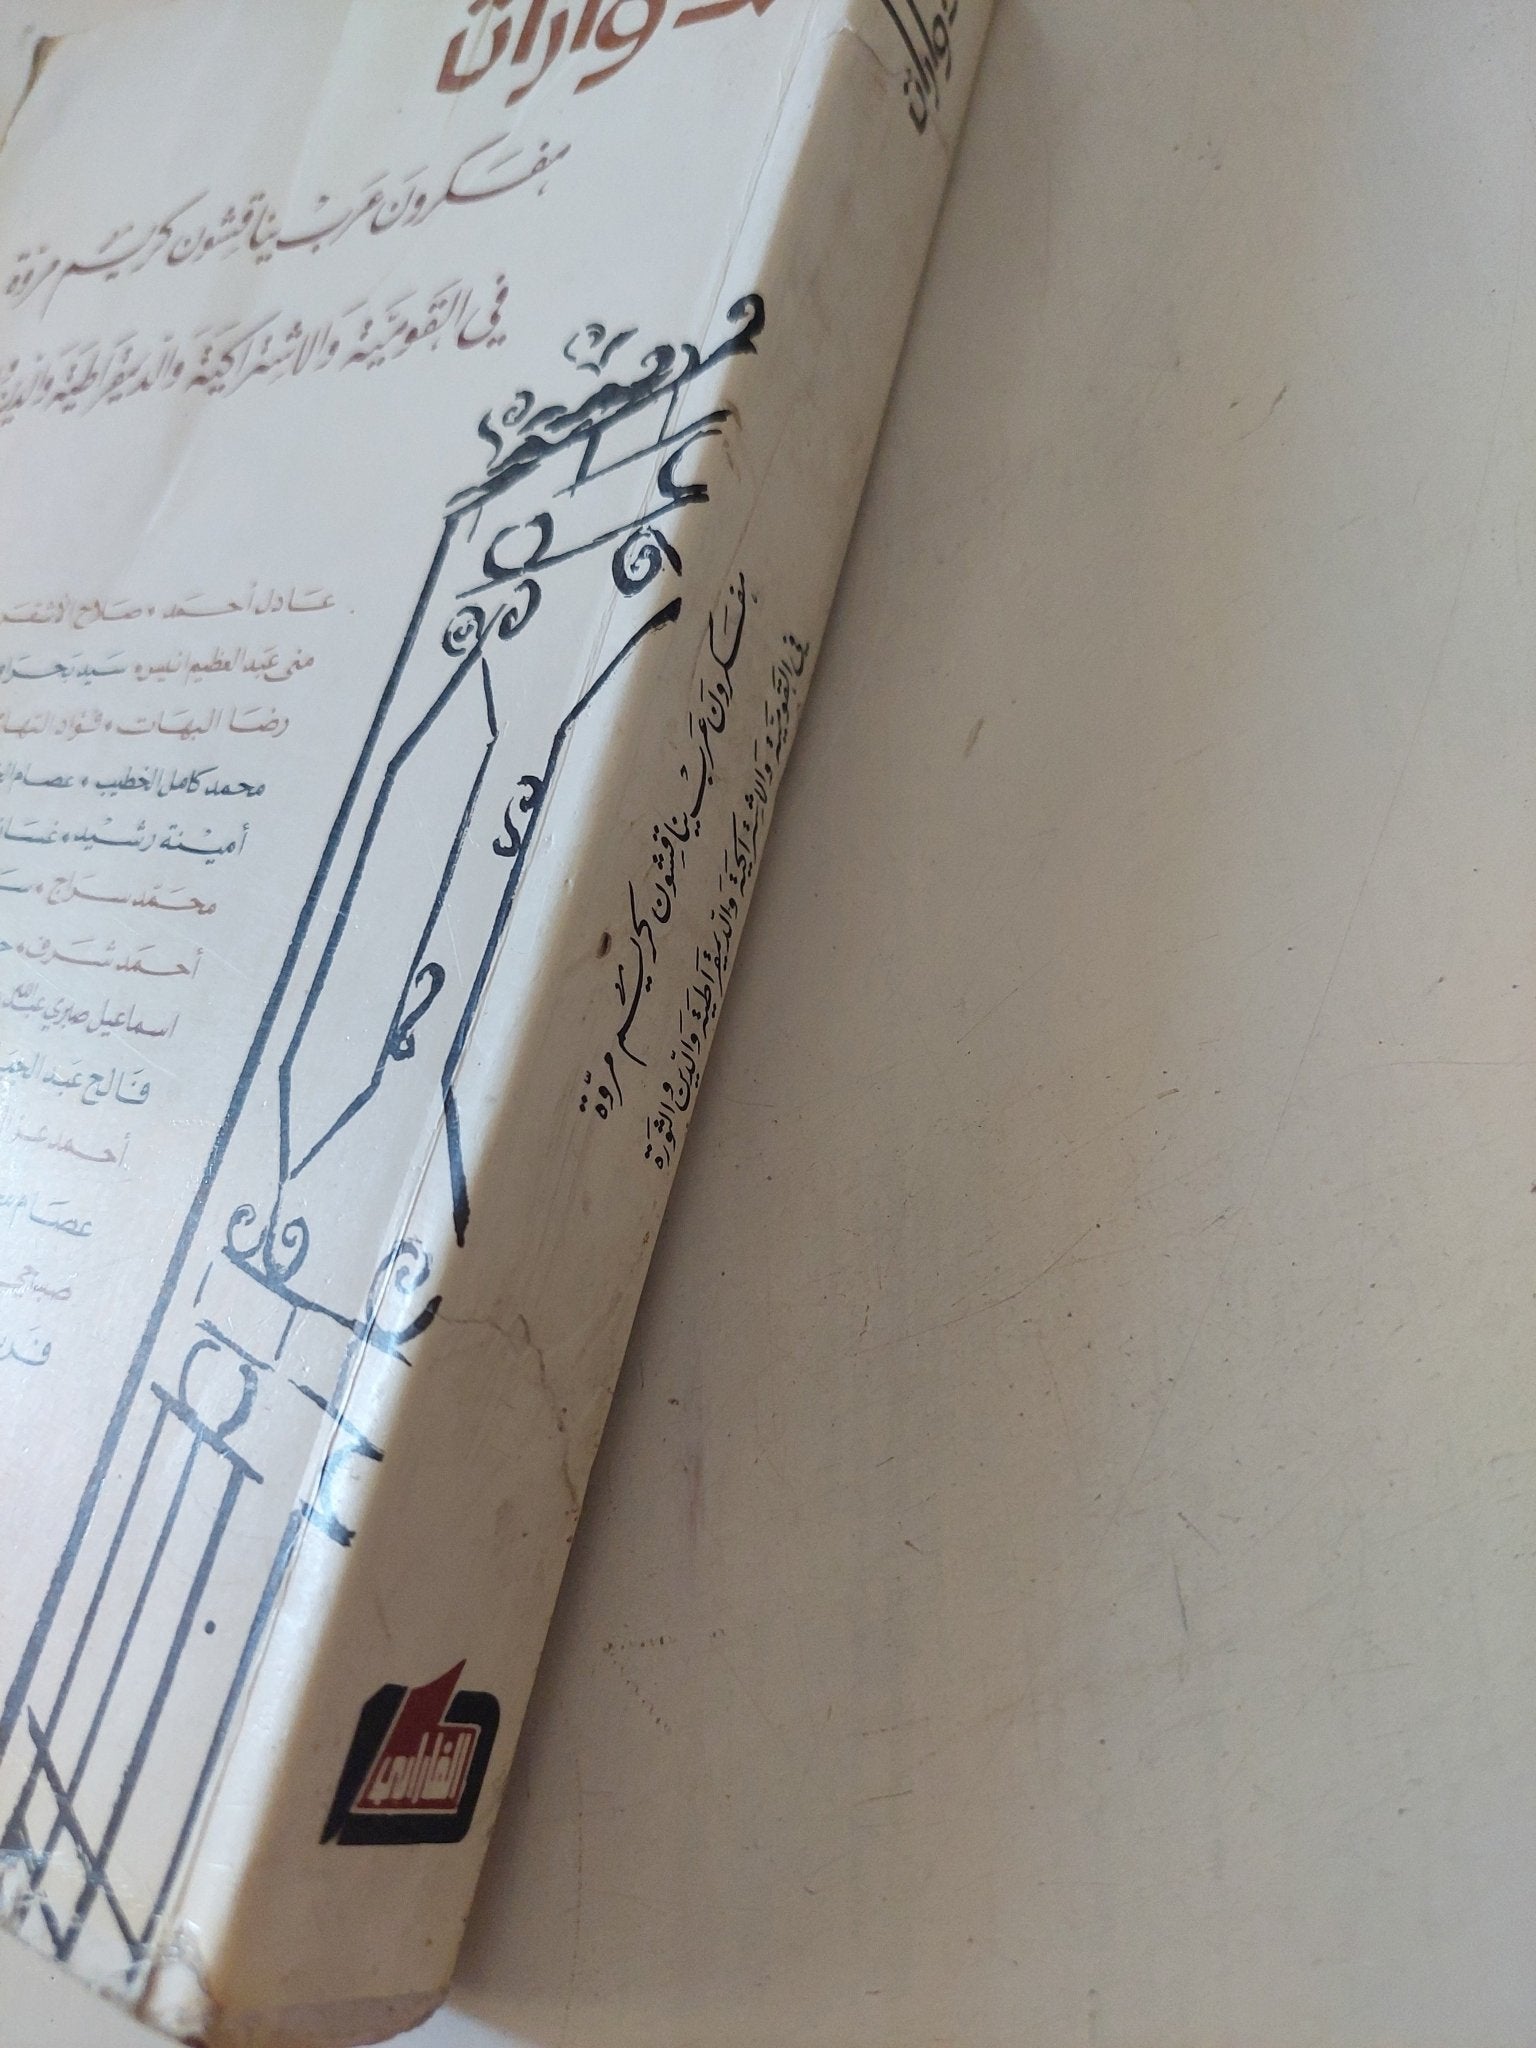 مفكرون عرب يناقشون كريم مروة
في القومية والاشتراكية والديمقراطية والدين
عادل أحمد • صلاح الأشقر
منى عبد العظيم انيس • سيد
رضا البهات • فؤاد
محمد كامل الخطيب • عصام
أمينة رشيد •
محمد سراج •
أحمد شرف •
اسماعيل صبري عبدالله
فالح عبد
أحمد
عصام
مفكرون عرب يناقشون كريم مروّة
في القومية والاشتراكية والديمقراطية والدين والثورة
الفارابي